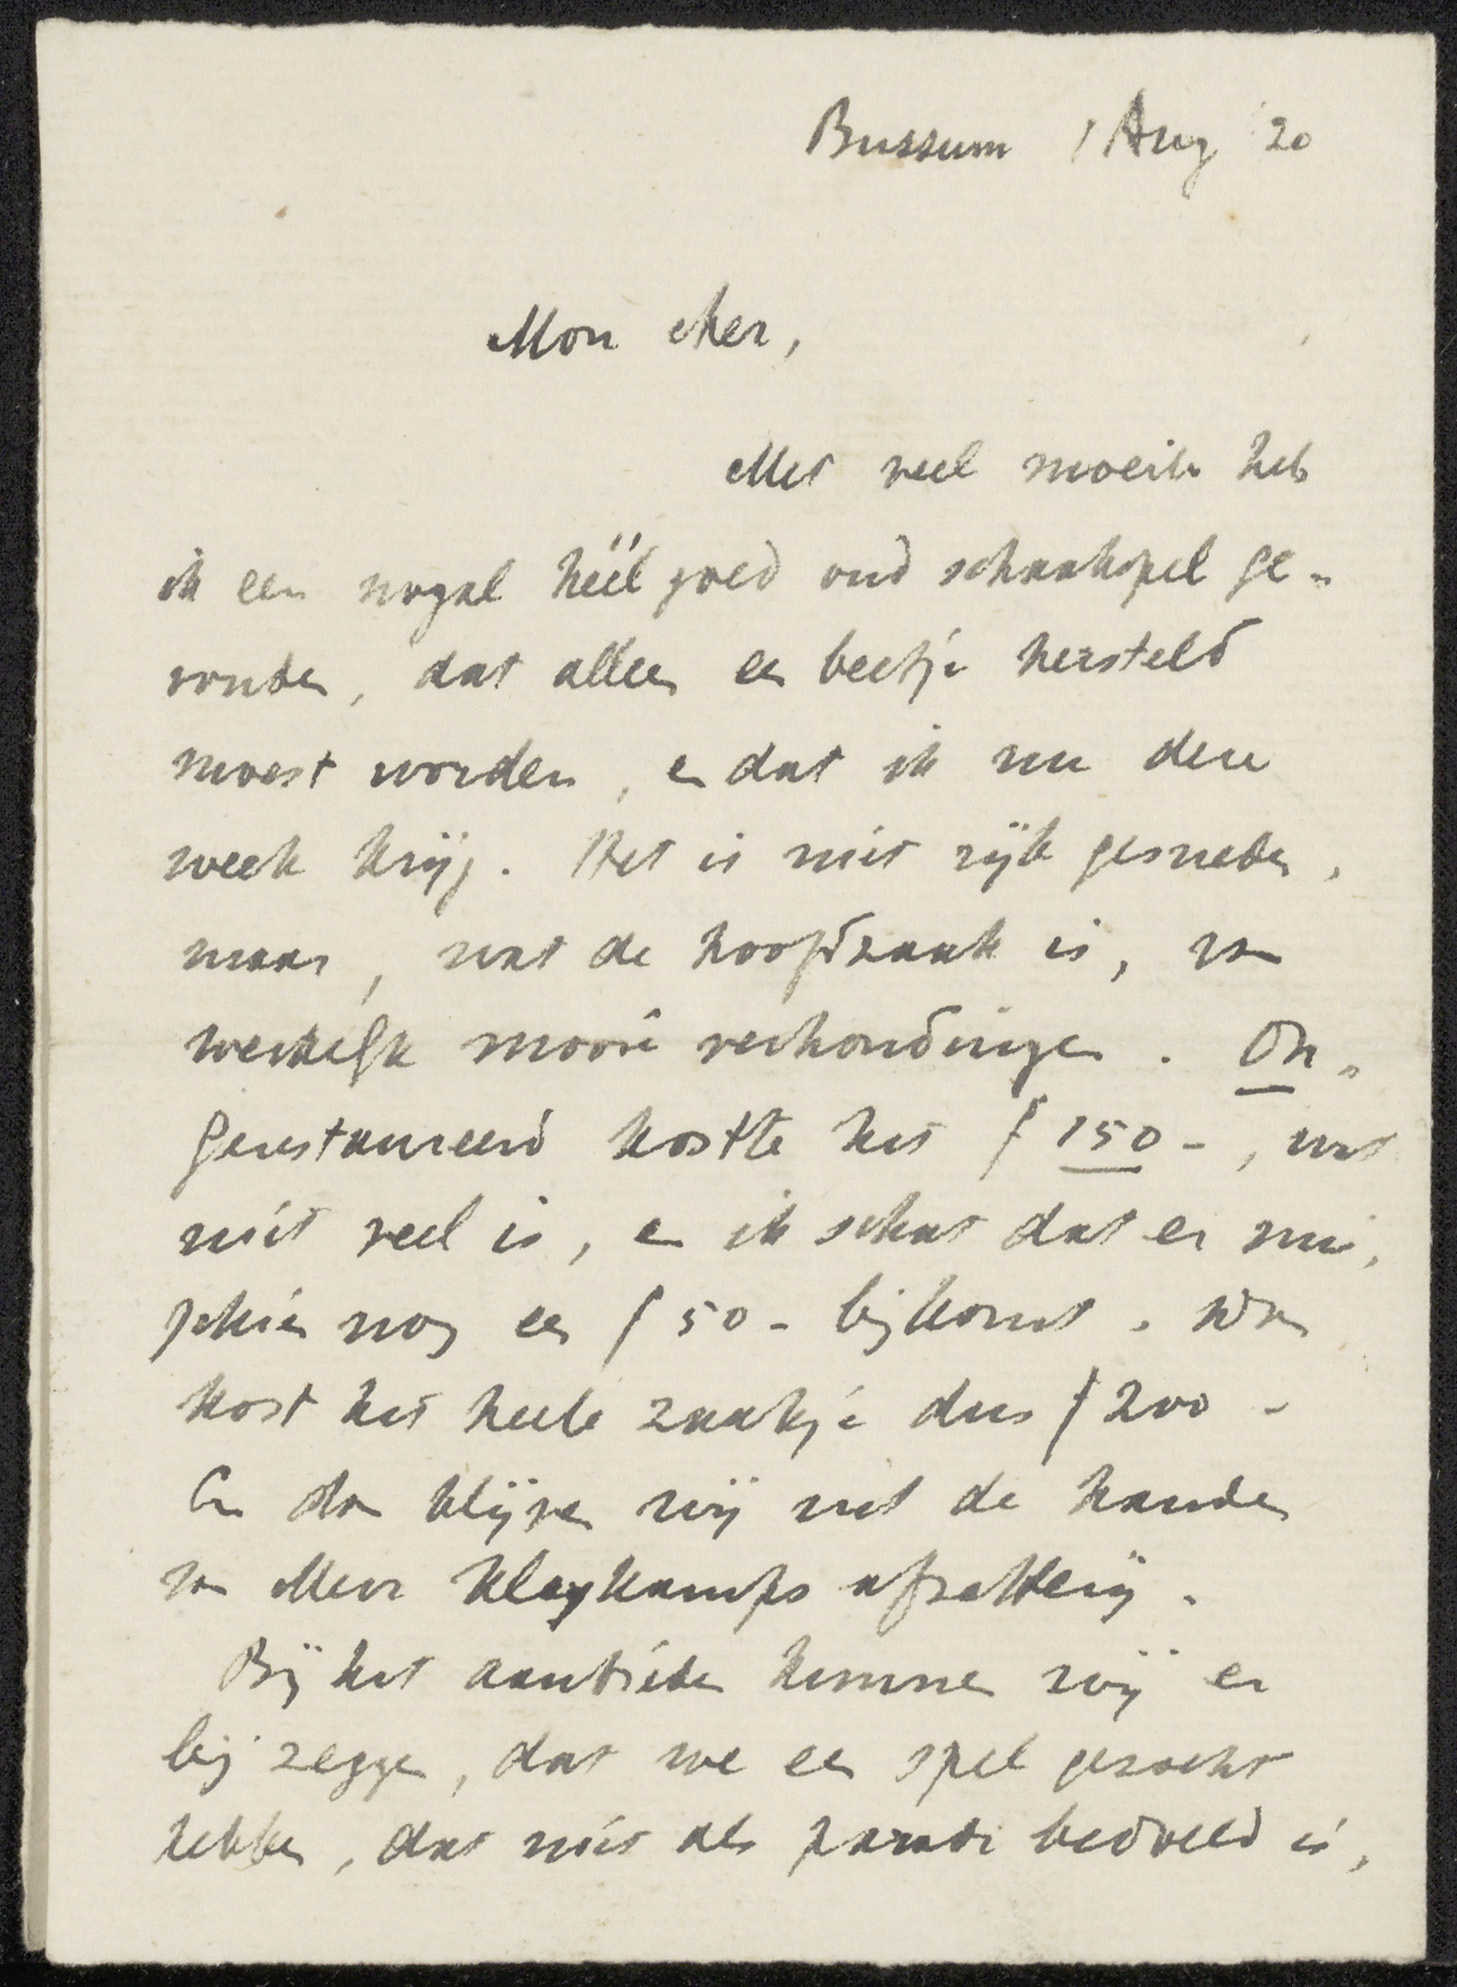 Bussum 1 Aug '20
Mon cher,
Met veel moeite heb
ik een nogal héél goed oud schaakspel ge-
vonden, dat alleen een beetje hersteld
moest worden, en dat ik nu deze
week krijg. Het is niet rijk gesneden,
maar, wat de hoofdzaak is, van
werkelijk mooie verhoudingen. On-
gerestaureerd kostte het f 150 -, wat
niet veel is, en ik schat dat er mis-
schien nog een f 50 - bijkomt. Dan
kost het heele zaakje dus f 200 -
En dan blijven wij uit de handen
van Mevr Kleykamps afzetterij.
Bij het aanbieden kunnen wij er
bij zeggen, dat we een spel gezocht
hebben, dat niet als parade bedoeld is,